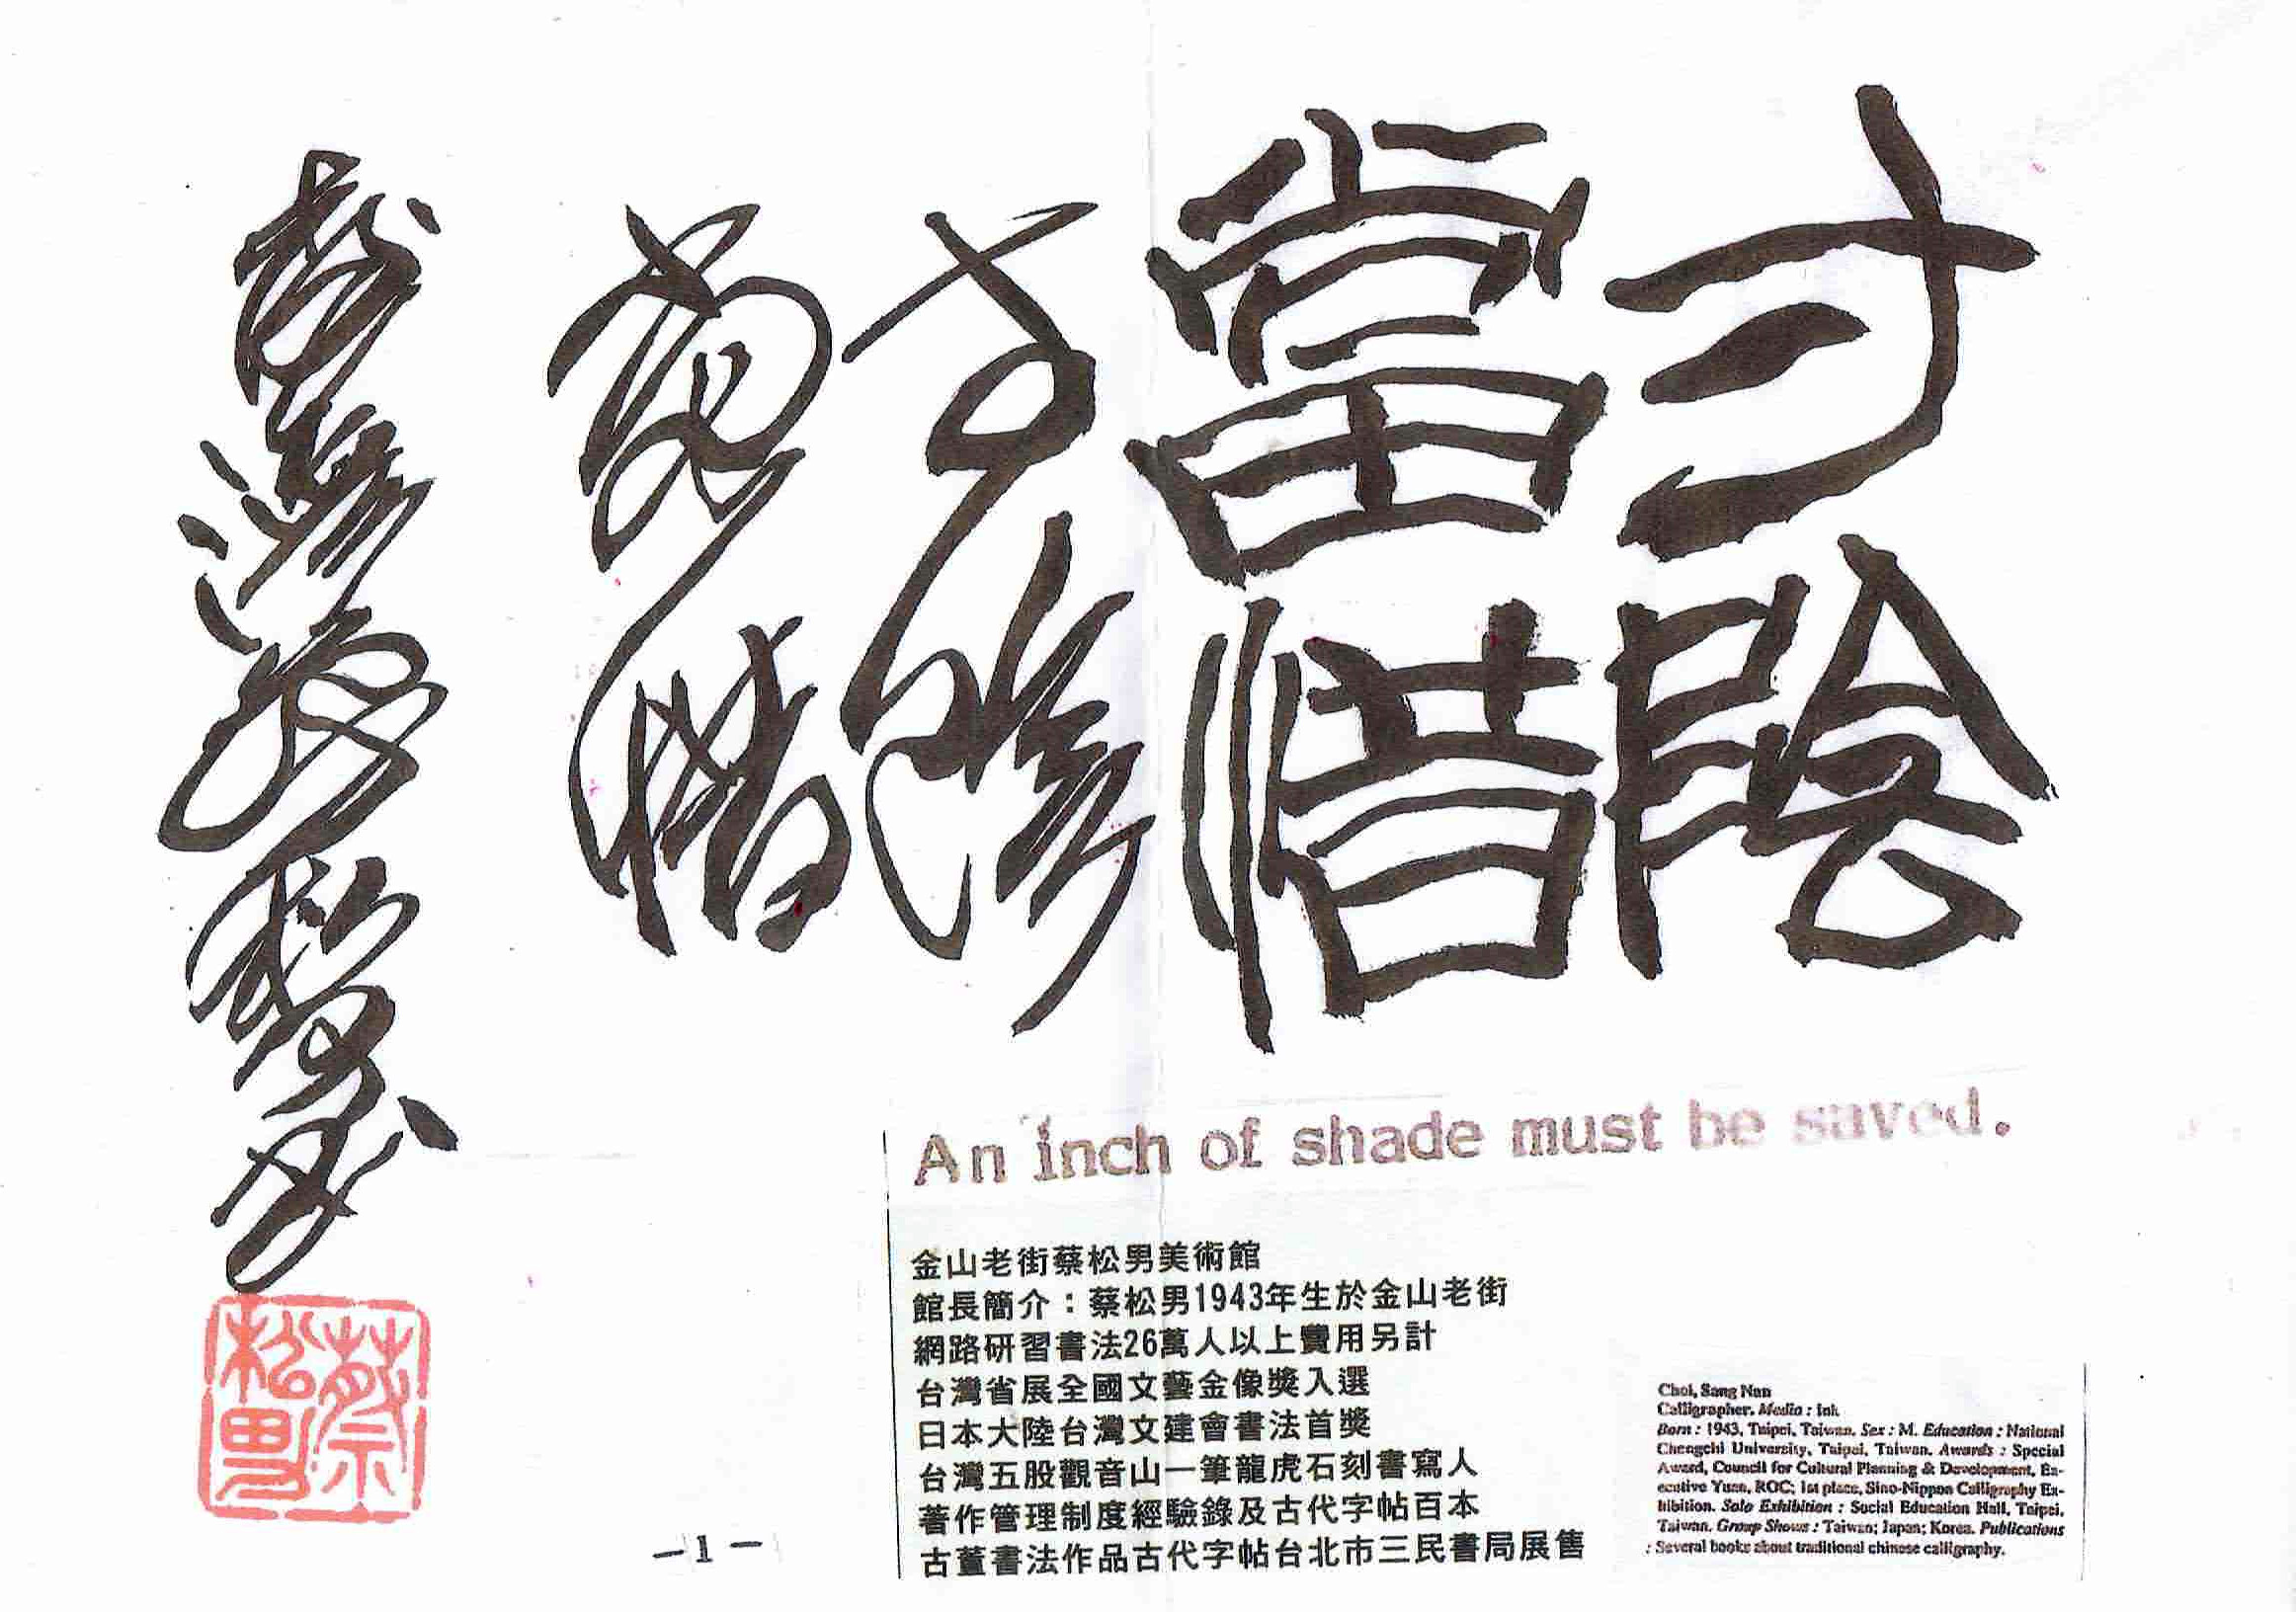 寸陰
當惜
寸陰
當惜
An inch of shade must be saved.
金山老街蔡松男美術館
館長簡介：蔡松男1943年生於金山老街
網路研習書法26萬人以上費用另計
台灣省展全國文藝金像獎入選
日本大陸台灣文建會書法首獎
台灣五股觀音山一筆龍虎石刻書寫人
著作管理制度經驗錄及古代字帖百本
古董書法作品古代字帖台北市三民書局展售
Choi, Sang Nan
Calligrapher. Media : Ink
Born : 1943, Taipei, Taiwan. Sex : M. Education : National
Chengchi University, Taipei, Taiwan. Awards : Special
Award, Council for Cultural Planning & Development, Ex-
ecutive Yuan, ROC; 1st place, Sino-Nippon Calligraphy Ex-
hibition. Solo Exhibition : Social Education Hall, Taipei,
Taiwan. Group Shows : Taiwan; Japan; Korea. Publications
: Several books about traditional chinese calligraphy.
蔡松男
－1－